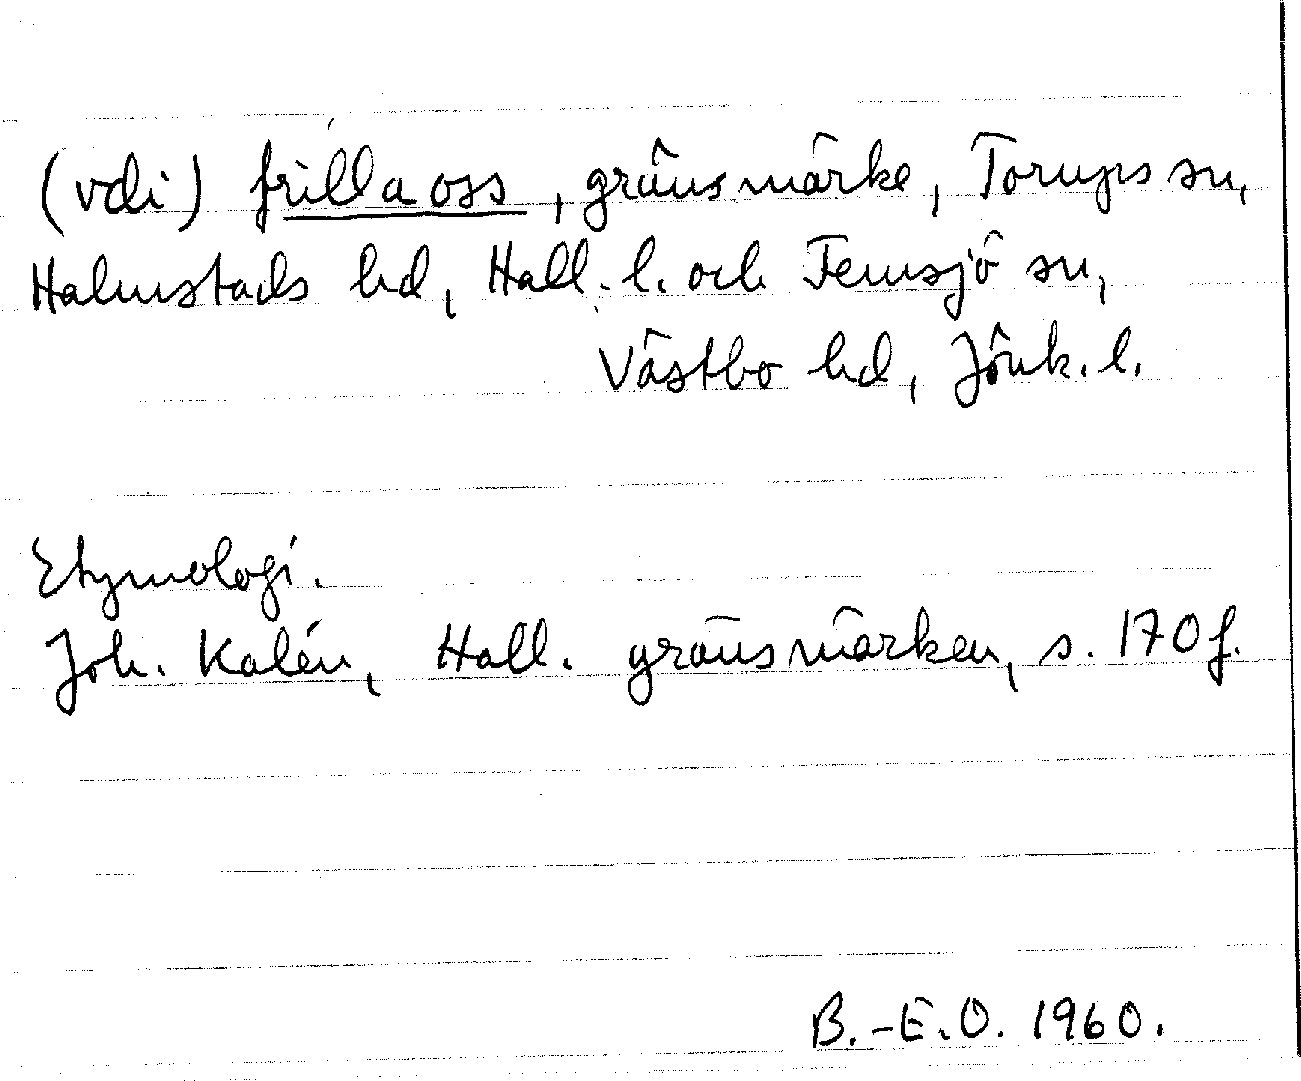 (vdi) frilla oss, gränsmärke, Torups sn,
Halmstads hd, Hall. l. och Femsjö sn,
Västbo hd, Jönk. l.
Etymologi.
Joh. Kalén, Hall. gränsmärken, s. 170 f.
B.-E.O. 1960.